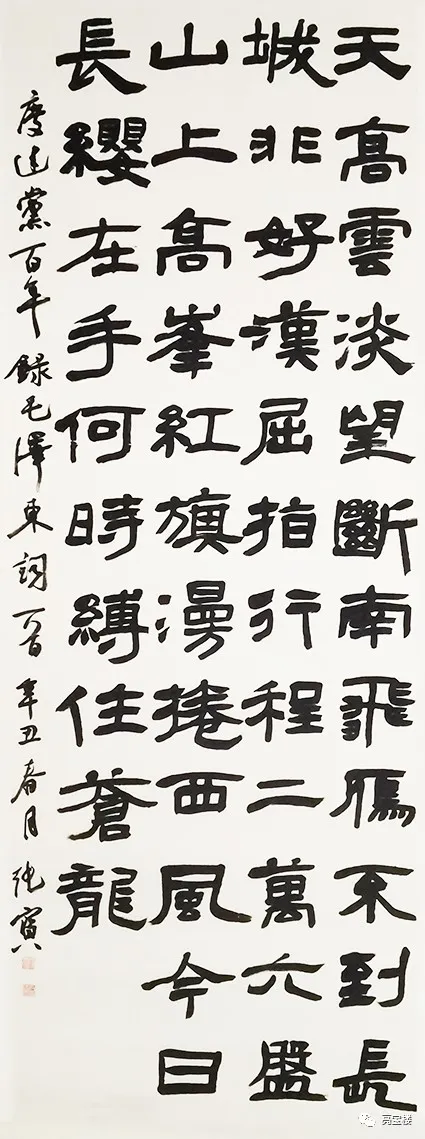 天高雲淡望斷南飛鴈不到長
城非好漢屈指行程二萬六盤
山上高峯紅旗漫捲西風今日
長纓在手何時縛住蒼龍
慶建黨百年錄毛澤東詞一首辛丑春月
亮宝楼